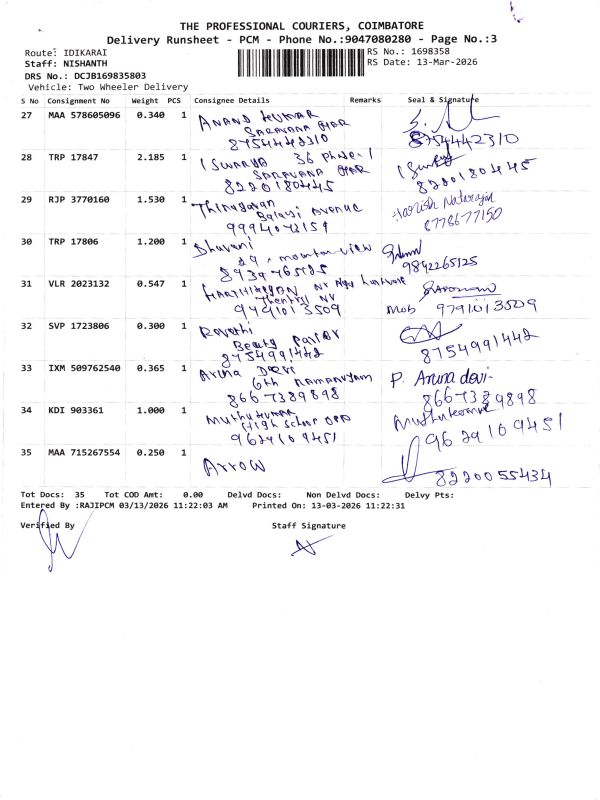 THE PROFESSIONAL COURIERS, COIMBATORE
Delivery Runsheet - PCM - Phone No.:9047080280 - Page No.:3
Route: IDIKARAI
RS No.: 1698358
Staff: NISHANTH
RS Date: 13-Mar-2026
DRS No.: DCJB169835803
Vehicle: Two Wheeler Delivery
S No Consignment No Weight PCS Consignee Details Remarks Seal & Signature
27 MAA 578605096 0.340 1 ANAND KUMAR
SARAVANA
8754442310 8754442310
28 TRP 17847 2.185 1 ISWARYA 36 Phase-1
SARAVANA
8220180445 8220180445
29 RJP 3770160 1.530 1
Balaji Avenue Harish Natarajan
8778677150
30 TRP 17806 1.200 1 Bhuvani
29, mountain view
9842265125
31 VLR 2023132 0.547 1
Mob 9791013509
32 SVP 1723806 0.300 1 Revathi
Beauty Parlor
8754991442 8754991442
33 IXM 509762540 0.365 1 Aruna Devi P. Aruna devi.
6th
8667389898 8667389898
34 KDI 903361 1.000 1 Muthukumar Muthukumar
High School OPP
9629109451 9629109451
35 MAA 715267554 0.250 1 Arrow
8220055434
Tot Docs: 35 Tot COD Amt: 0.00 Delvd Docs: Non Delvd Docs: Delvy Pts:
Entered By :RAJIPCM 03/13/2026 11:22:03 AM Printed On: 13-03-2026 11:22:31
Verified By Staff Signature